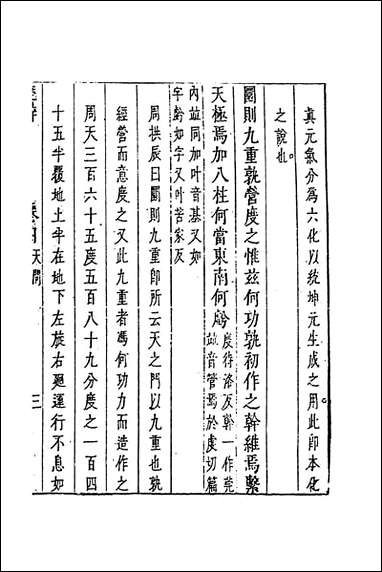 真元氣分為六化以統坤元生成之用此即本化
之說也
圜則九重孰營度之惟茲何功孰初作之斡維焉繫
天極焉加八柱何當東南何虧
度待洛反斡一作筦
故音管焉於虔切篇
內並同加叶音基又如
字虧如字又叶苦家反
周拱辰曰圜則九重即所云天之門以九重也孰
經營而意度之又此九重者馮何功力而造作之
周天三百六十五度五百八十九分度之一百四
十五半覆地上半在地下左旋右廻運行不息如
卷四天問
三